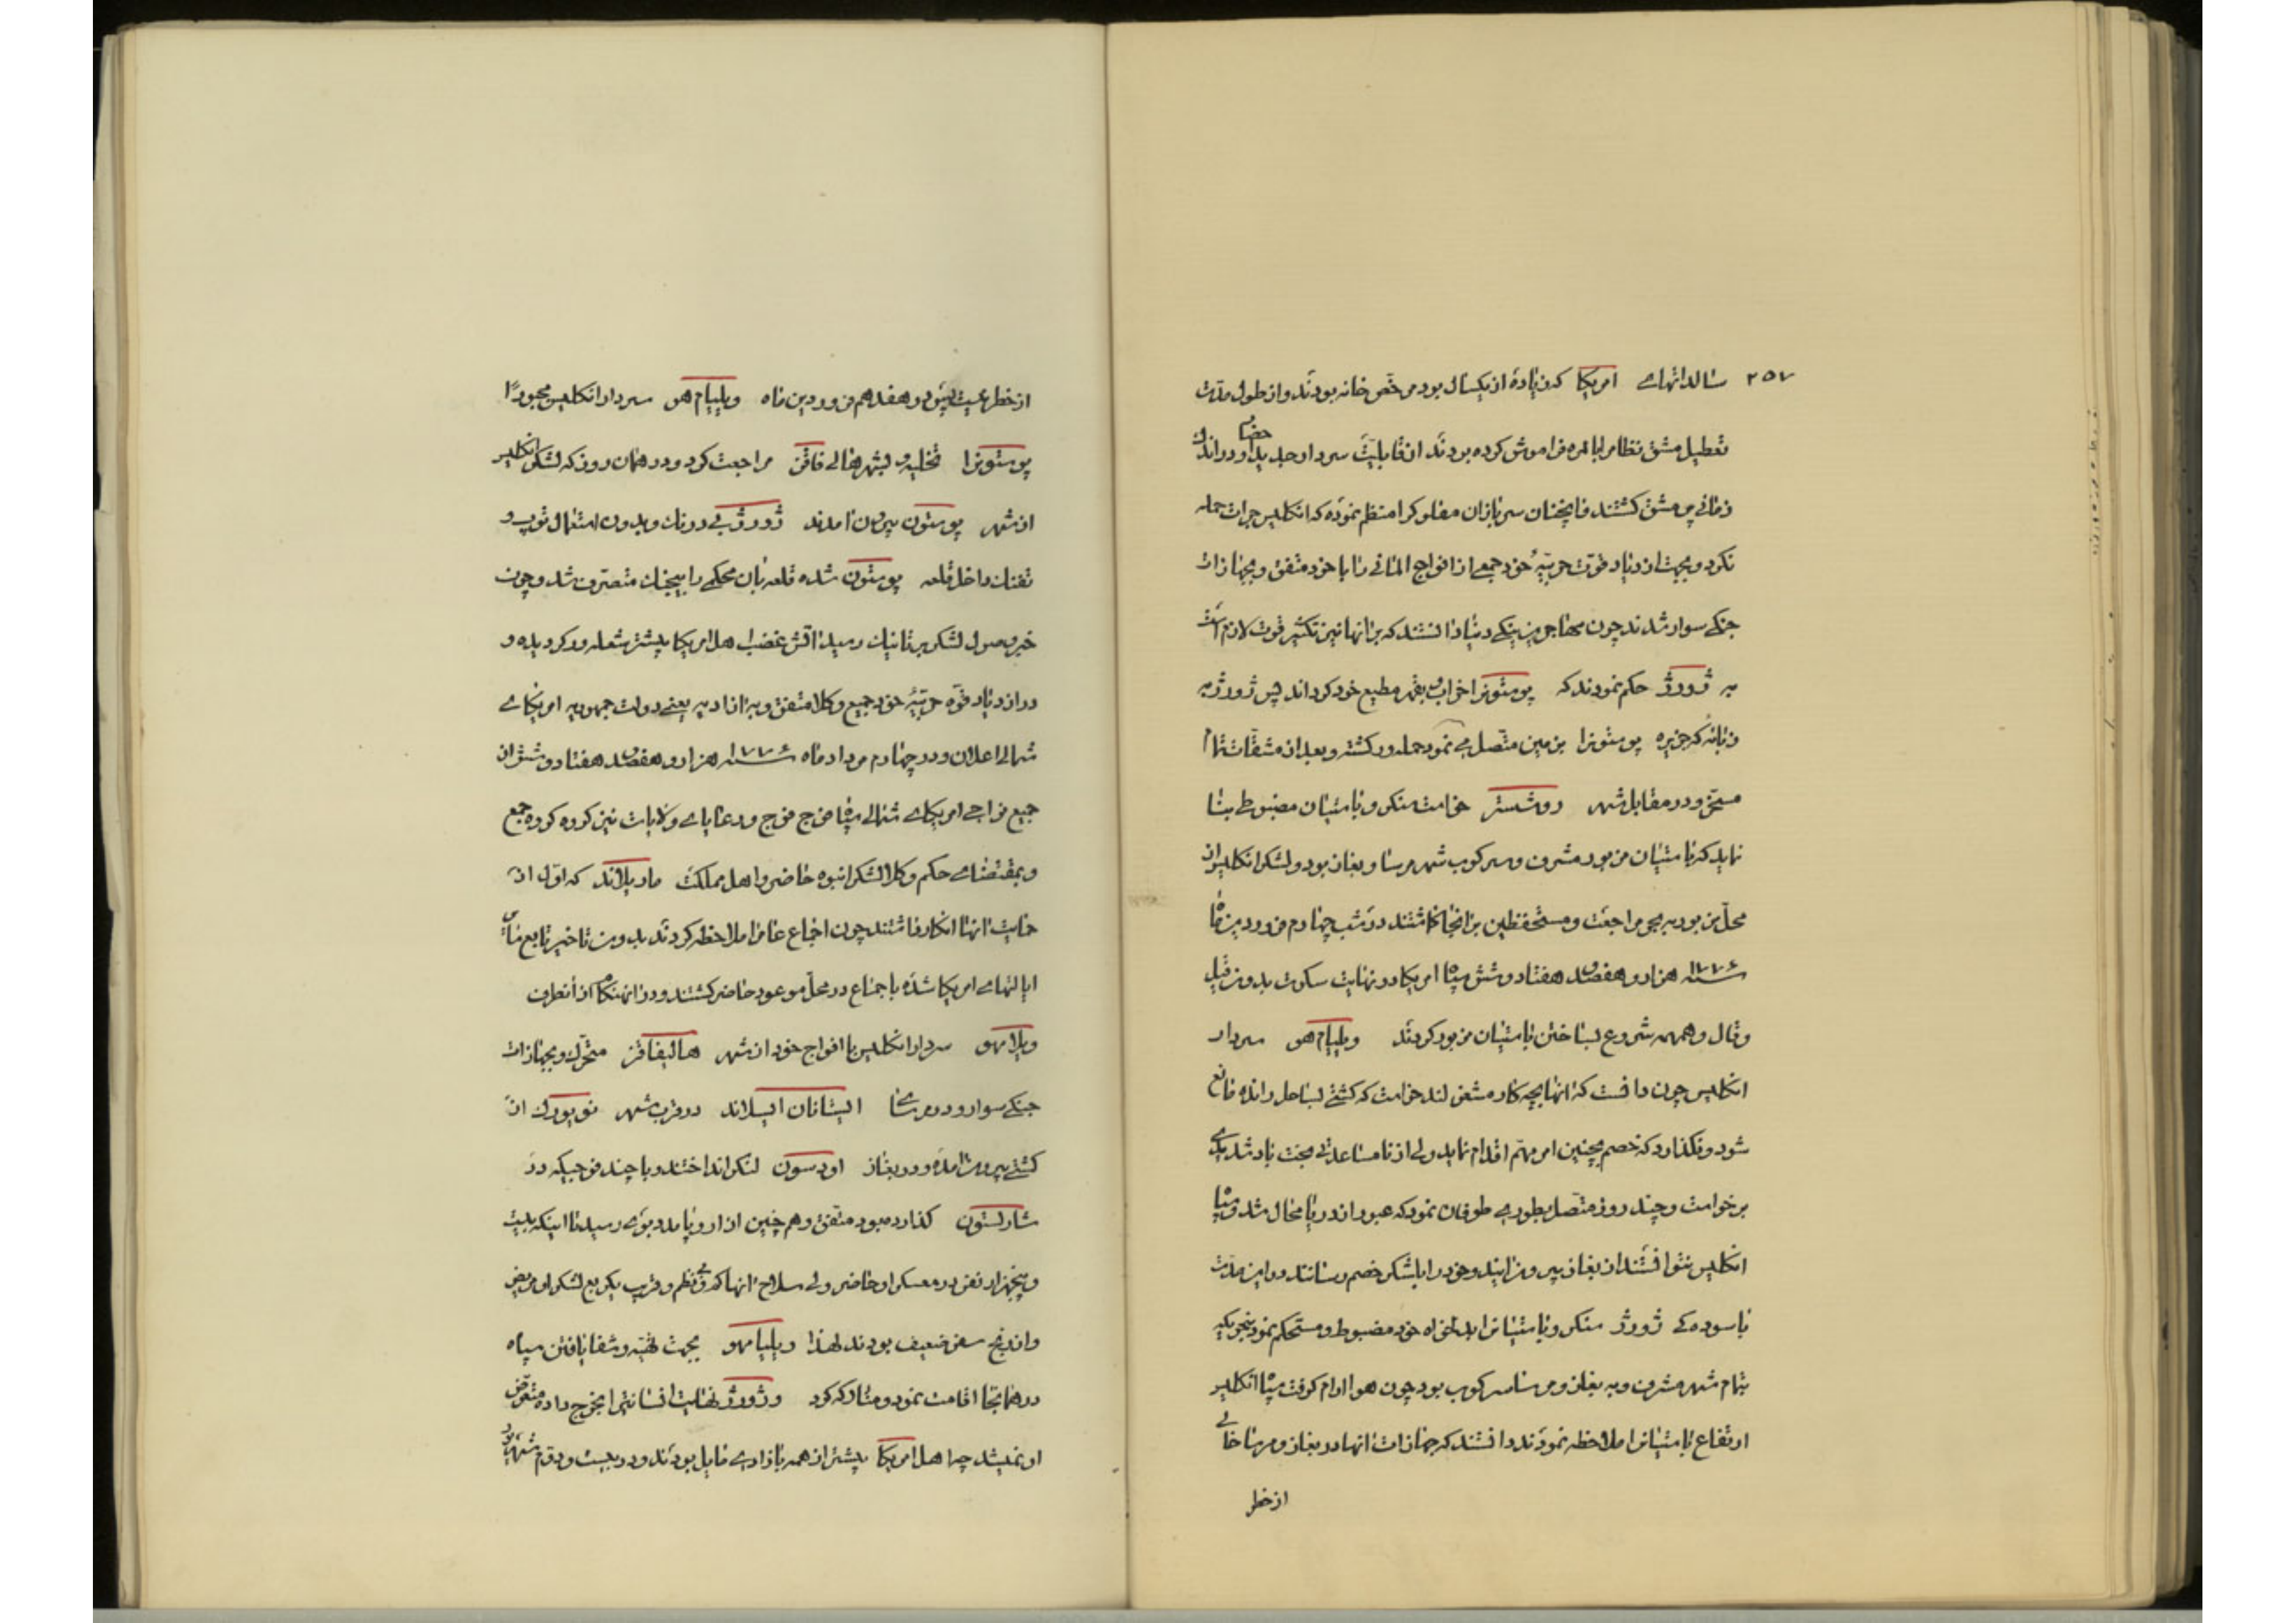 ۲۵۷ سالداتهای امریکا که زیاده از یکسال بود مرخص خانه بودند و از طول مدت
تعطیل مشق نظام را بالمره فراموش کرده بودند از قابلیت سردار جدید حضا و در اندک
زمانی پر مشق کشتند سربازان مفلوکرا منتظم نموده که انکلیس جرات حمله
نکرد و بجهت ازدیاد قوت حربیهٔ خود جمعی از افواج المانی را با خود متفق و بجهازات
جنکی سوار شدند چون دانستند که بر انها نیز تکثیر قوت لازم است
به ژورژ حکم نمودند که پوستونرا خراب و بقهر مطیع خود کرداند پس ژورژ به
زبانهٔ که جزیره پوستونرا بزمین متصل می نمود حمله ور کشته و بعد از مشقات تمام
مسخر و در مقابل شهر روشستر خواست سنکر و باستیان مضبوطی بنا
نماید که باستیان مزبور مشرف و سرکوب شهر مرسا و بغاز بود و لشکر انکلیس از
محل مزبور به مراجعت و مستحفظین بر انجا کماشتند در شب چهارم فروردین ماه
سنه ۱۷۷۶ هزار و هفصد هفتاد و شش سپاه امریکا در نهایت سکوت بدون قیل
و قال و همهمه شروع بساختن باستیان مزبور کردند ویلیام هو سردار
انکلیس چون دانست که انها بچه کار مشغولند خواست که کشتی بساحل رانده مانع
شود و نکذارد که خصم بچنین امر مهم اقدام نماید ولی از نامساعدتی بخت باد شدیدی
برخواست و چند روز متصل بطوری طوفان نمود که عبور از دریا محال شد و سپاه
انکلیس نتوانستند از بغاز بیرون ایند و خود را بلشکر خصم رسانند در این مدت
باسودکی ژورژ سنکر و باستیانرا بدلخواه خود مضبوط و مستحکم نمود بنحویکه
بتمام شهر مشرف و به بغاز و مرسا سرکوب بود چون هوا ارام کرفت سپاه انکلیس
ارتفاع باستیانرا ملاحظه نمودند دانستند که جهازات انها در بغاز و مرسا خالی
از خطر
از خطر نیست پس در هفدهم فروردین ماه ویلیام هو سردار انکلیس مجبورًا
پوستونرا تخلیه و بشهر هالی فاقز مراجعت کرد و در همان روز که لشکر انکلیس
از شهر پوستون بیرون امدند ژورژ بی درنک و بدون استعمال توپ و
تفنک داخل قلعه پوستون شده قلعه بان محکمی را بیجنک متصرف شد و چون
خبر وصول لشکر بریتانیک رسید اتش غضب اهل امریکا بیشتر شعله ور کردیده و
در ازدیاد قوه حربیهٔ خود جمیع وکلا متفق و به ازادیه یعنی دولت جمهوریه امریکای
شمالی اعلان و در چهارم مرداد ماه سنه ۱۷۷۶ هزار و هفصد هفتاد و شش از
جمیع نواحی امریکای شمالی سپاه فوج فوج و رعایای ولایات نیز کروه کروه جمع
و بمقتضای حکم وکلا لشکر انبوه حاضر و اهل مملکت ماریلاند که اول از
حمایت انها انکار داشتند چون اجماع عامرا ملاحظه کردند بدون تاخیر تابع سایر
ایالتهای امریکا شده باجماع در محل موعود حاضر کشتند و در انهنکام از انطرف
ویلیام هو سردار انکلیس با افواج خود از شهر هالیفاقز متحرک و بجهازات
جنکی سوار و در مرسای استاتان ایسلاند در قرب شهر نویورک از
کشتی بیرون امده و در بغاز اودسون لنکر انداختند و با چند فوجیکه در
شارلستون کذارده بود متفق و هم چنین از اروپا مدد بوی رسید تا اینکه بیست
و پنجهزار نفر در معسکر او حاضر ولی سلاح انها کم و بی نظم و قریب یکربع لشکر او مریض
و از رنج سفر ضعیف بودند لهذا ویلیام هو بجهت تهیه و شفا یافتن سپاه
در همانجا اقامت نمود و متارکه کرد و ژورژ نهایت انسانیترا بخرج داده متعرض
او نمیشد چرا اهل امریکا بیشتر از همه بازادی مایل بودند و در بیست و دوم شهریور